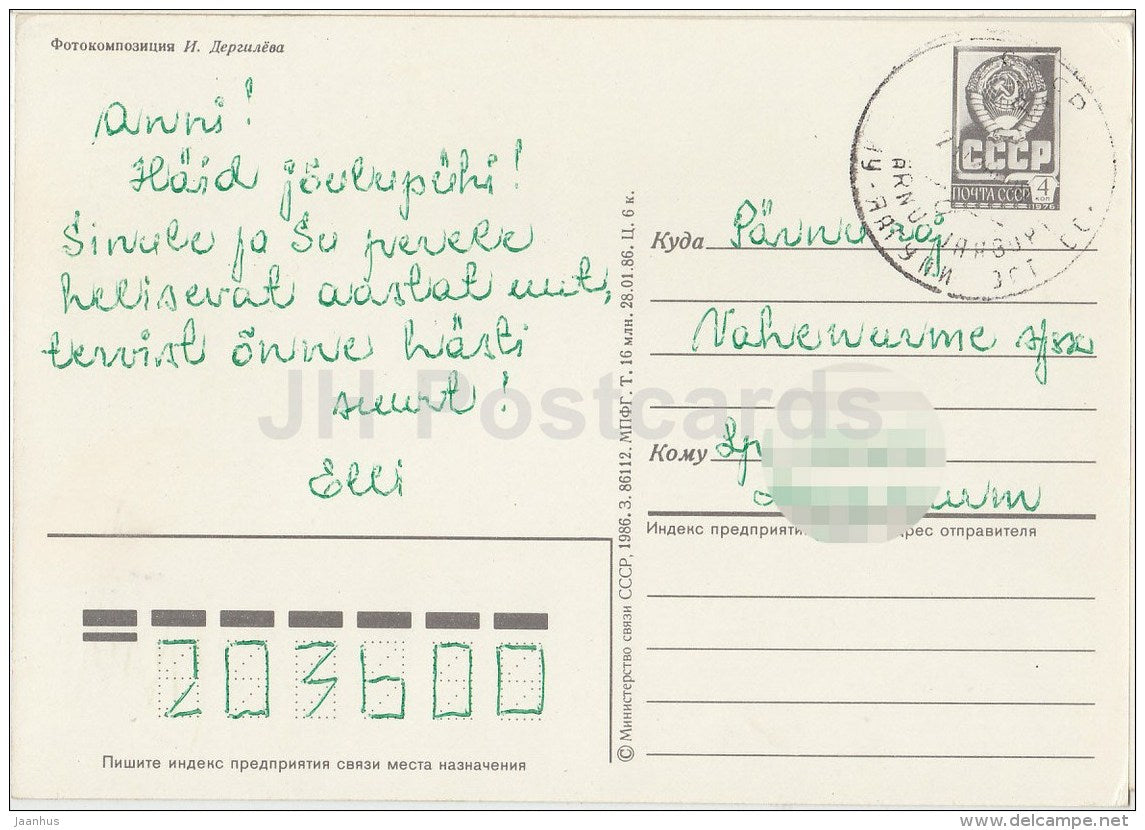 Фотокомпозиция И. Дергилёва
Anni!
Häid jõulupühi!
Sinule ja Su perele
helisevat aastat uut,
tervist õnne hästi
suurt!
Elli
СССР
ПОЧТА СССР
4 КОП
1976
Куда Pärnu raj
Vahenurme
Кому
Индекс предприяти
дрес отправителя
© Министерство связи СССР, 1986. З. 86112. МПФГ. Т. 16 млн. 28.01.86. Ц. 6 к.
203600
Пишите индекс предприятия связи места назначения
JH Postcards
Jaanhus
www.delcampe.net